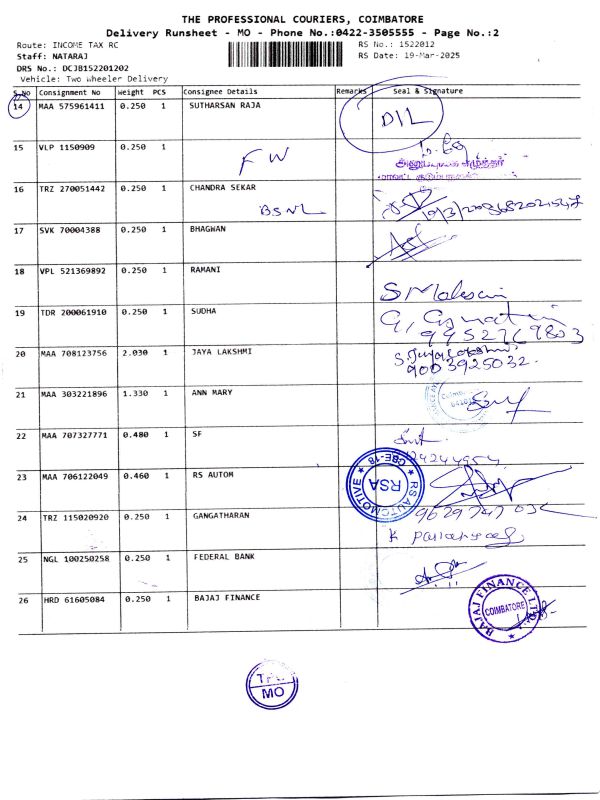 THE PROFESSIONAL COURIERS, COIMBATORE
Delivery Runsheet - MO - Phone No.:0422-3505555 - Page No.:2
Route: INCOME TAX RC
RS No.: 1522012
Staff: NATARAJ
RS Date: 19-Mar-2025
DRS No.: DCJB152201202
Vehicle: Two Wheeler Delivery
S.No Consignment No Weight PCS Consignee Details Remarks Seal & Signature
14 MAA 575961411 0.250 1 SUTHARSAN RAJA
DIL
15 VLP 1150909 0.250 1
FW
16 TRZ 270051442 0.250 1 CHANDRA SEKAR
BSNL
17 SVK 70004388 0.250 1 BHAGWAN
18 VPL 521369892 0.250 1 RAMANI
19 TDR 200061910 0.250 1 SUDHA
9952769803
20 MAA 708123756 2.030 1 JAYA LAKSHMI
9003925032
21 MAA 303221896 1.330 1 ANN MARY
22 MAA 707327771 0.480 1 SF
23 MAA 706122049 0.460 1 RS AUTOM
RS AUTOMOTIVE
CBE-18
RSA
24 TRZ 115020920 0.250 1 GANGATHARAN
25 NGL 100250258 0.250 1 FEDERAL BANK
26 HRD 61605084 0.250 1 BAJAJ FINANCE
BAJAJ FINANCE LTD.
COIMBATORE
MO